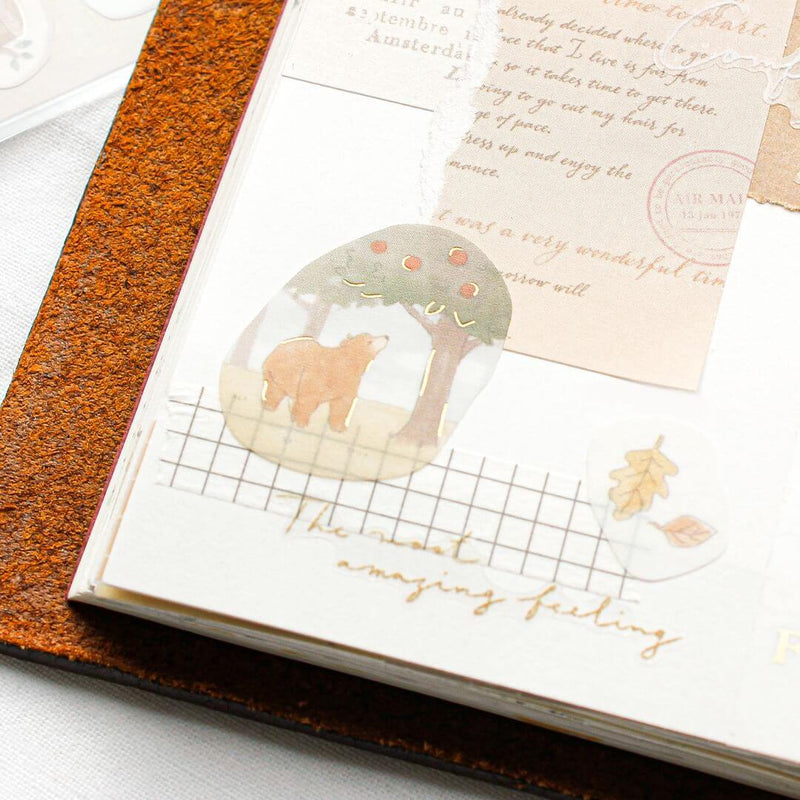 au
septembre
Amsterda
time to start.
already decided where to go
ce that I live is far from
so it takes time to get there.
ing to go cut my hair for
ge of pace.
ress up and enjoy the
mance.
AIR MAI
13 Jan 197
t was a very wonderful tim
orrow will
The most
amazing feeling
F